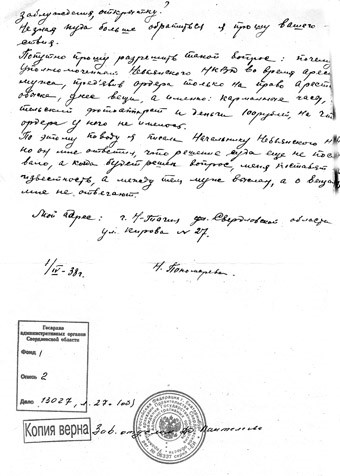 заблуждения, открытку?
Не зная куда больше обратиться я прошу вашего
ствия.
Попутно прошу разрешить такой вопрос: почему
уполномоченный Невьянского НКВД во время арес
мужа, предъявив ордера только на право ареста
обыска, взял вещи, а именно: карманные часы,
фотоаппарат и деньги 100 рублей, на что
ордера у него не имелось.
По этому поводу я писала Начальнику Невьянского НК
но он мне ответил, что решения суда еще не пос
вало, а когда будет решен вопрос, меня поставят
известность, а между тем мужа выслали, а о вещах
мне не отвечают.
Мой адрес: г. Н-Тагил Свердловской области
ул. Кирова № 27.
1/IV-38 г.
Н. Пономарева
Госархив
административных органов
Свердловской области
Фонд 1
Опись 2
Дело 13027, л. 27 (об)
Копия верна
Зав. отделом